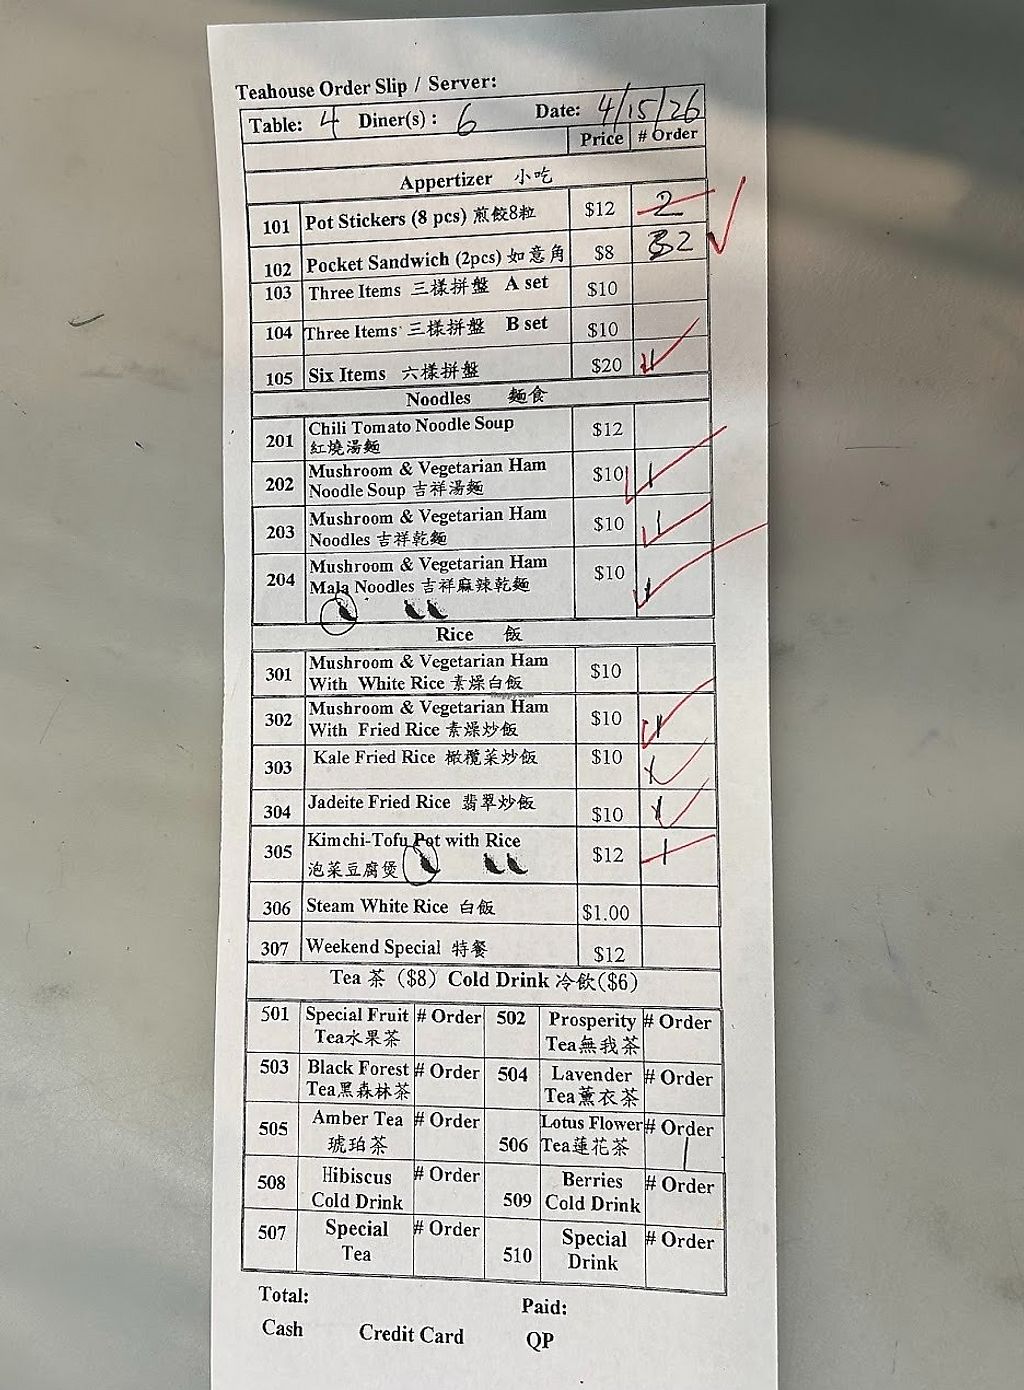 Teahouse Order Slip / Server:
Table: 4 Diner(s) : 6 Date: 4/15/26
Price # Order
Appertizer 小吃
101 Pot Stickers (8 pcs) 煎餃8粒 $12 2
102 Pocket Sandwich (2pcs) 如意角 $8 2
103 Three Items 三樣拼盤 A set $10
104 Three Items 三樣拼盤 B set $10
105 Six Items 六樣拼盤 $20
Noodles 麵食
201 Chili Tomato Noodle Soup $12
紅燒湯麵
202 Mushroom & Vegetarian Ham $10 1
Noodle Soup 吉祥湯麵
203 Mushroom & Vegetarian Ham $10 1
Noodles 吉祥乾麵
204 Mushroom & Vegetarian Ham $10 1
Mala Noodles 吉祥麻辣乾麵
Rice 飯
301 Mushroom & Vegetarian Ham $10
With White Rice 素燥白飯
302 Mushroom & Vegetarian Ham $10
With Fried Rice 素燥炒飯
HappyCow
303 Kale Fried Rice 橄欖菜炒飯 $10
304 Jadeite Fried Rice 翡翠炒飯 $10 1
305 Kimchi-Tofu Pot with Rice $12 1
泡菜豆腐煲
306 Steam White Rice 白飯 $1.00
307 Weekend Special 特餐 $12
Tea 茶 ($8) Cold Drink 冷飲($6)
501 Special Fruit # Order 502 Prosperity # Order
Tea水果茶 Tea無我茶
503 Black Forest # Order 504 Lavender # Order
Tea黑森林茶 Tea薰衣茶
505 Amber Tea # Order 506 Lotus Flower # Order
琥珀茶 Tea蓮花茶 1
508 Hibiscus # Order 509 Berries # Order
Cold Drink Cold Drink
507 Special # Order 510 Special # Order
Tea Drink
Total: Paid:
Cash Credit Card QP